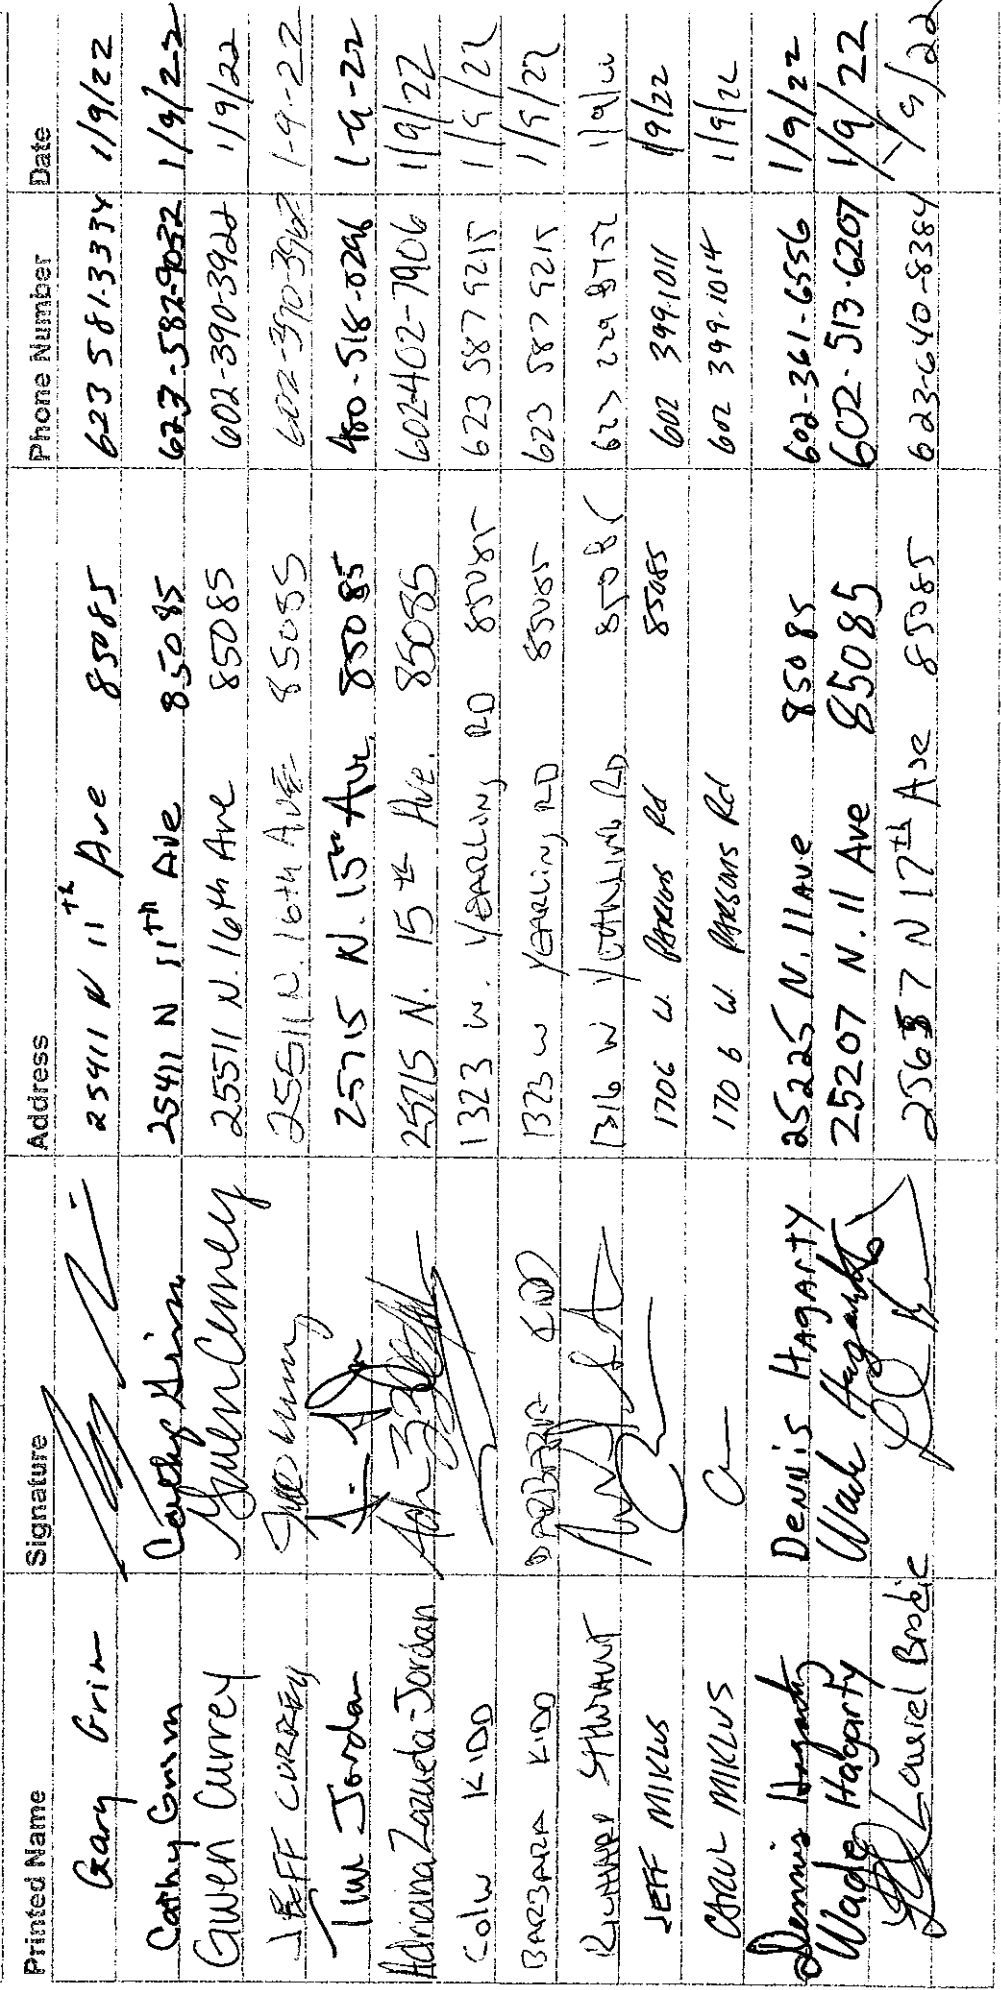 Printed Name Signature Address Phone Number Date
Gary Grim 25411 N 11th Ave 85085 623 581-3334 1/9/22
Cathy Grim Cathy Grim 25411 N 11th Ave 85085 623-582-9032 1/9/22
Gwen Currey 25511 N. 16th Ave 85085 602-390-3922 1/9/22
JEFF CURREY 25511 N. 16th AVE 85085 1-9-22
Tim Jordan 25715 N. 15th Ave. 85085 480-518-0296 1-9-22
Adriana Zazueta-Jordan 25715 N. 15th Ave. 85085 602-402-7906 1/9/22
KIDD 1323 W. YEARLING RD 85085 623 587 9215 1/9/22
BARBARA KIDD BARBARA KIDD 1323 W YEARLING RD 85085 623 587 9215 1/9/22
RICHARD 1316 W YEARLING RD 85085 1/9/22
JEFF MIKLUS 1706 W. PARSONS Rd 85085 602 399.1011 1/9/22
CAROL MIKLUS 1706 W. PARSONS Rd 602 399.1014 1/9/22
Dennis Hagarty DENNIS HAGARTY 25225 N. 11 AVE 85085 602-361-6556 1/9/22
Wade Hagarty Wade Hagarty 25207 N. 11 Ave 85085 602-513-6207 1/9/22
Laurel Brodie N 17th Ave 85085 623-640-8384 1/9/22